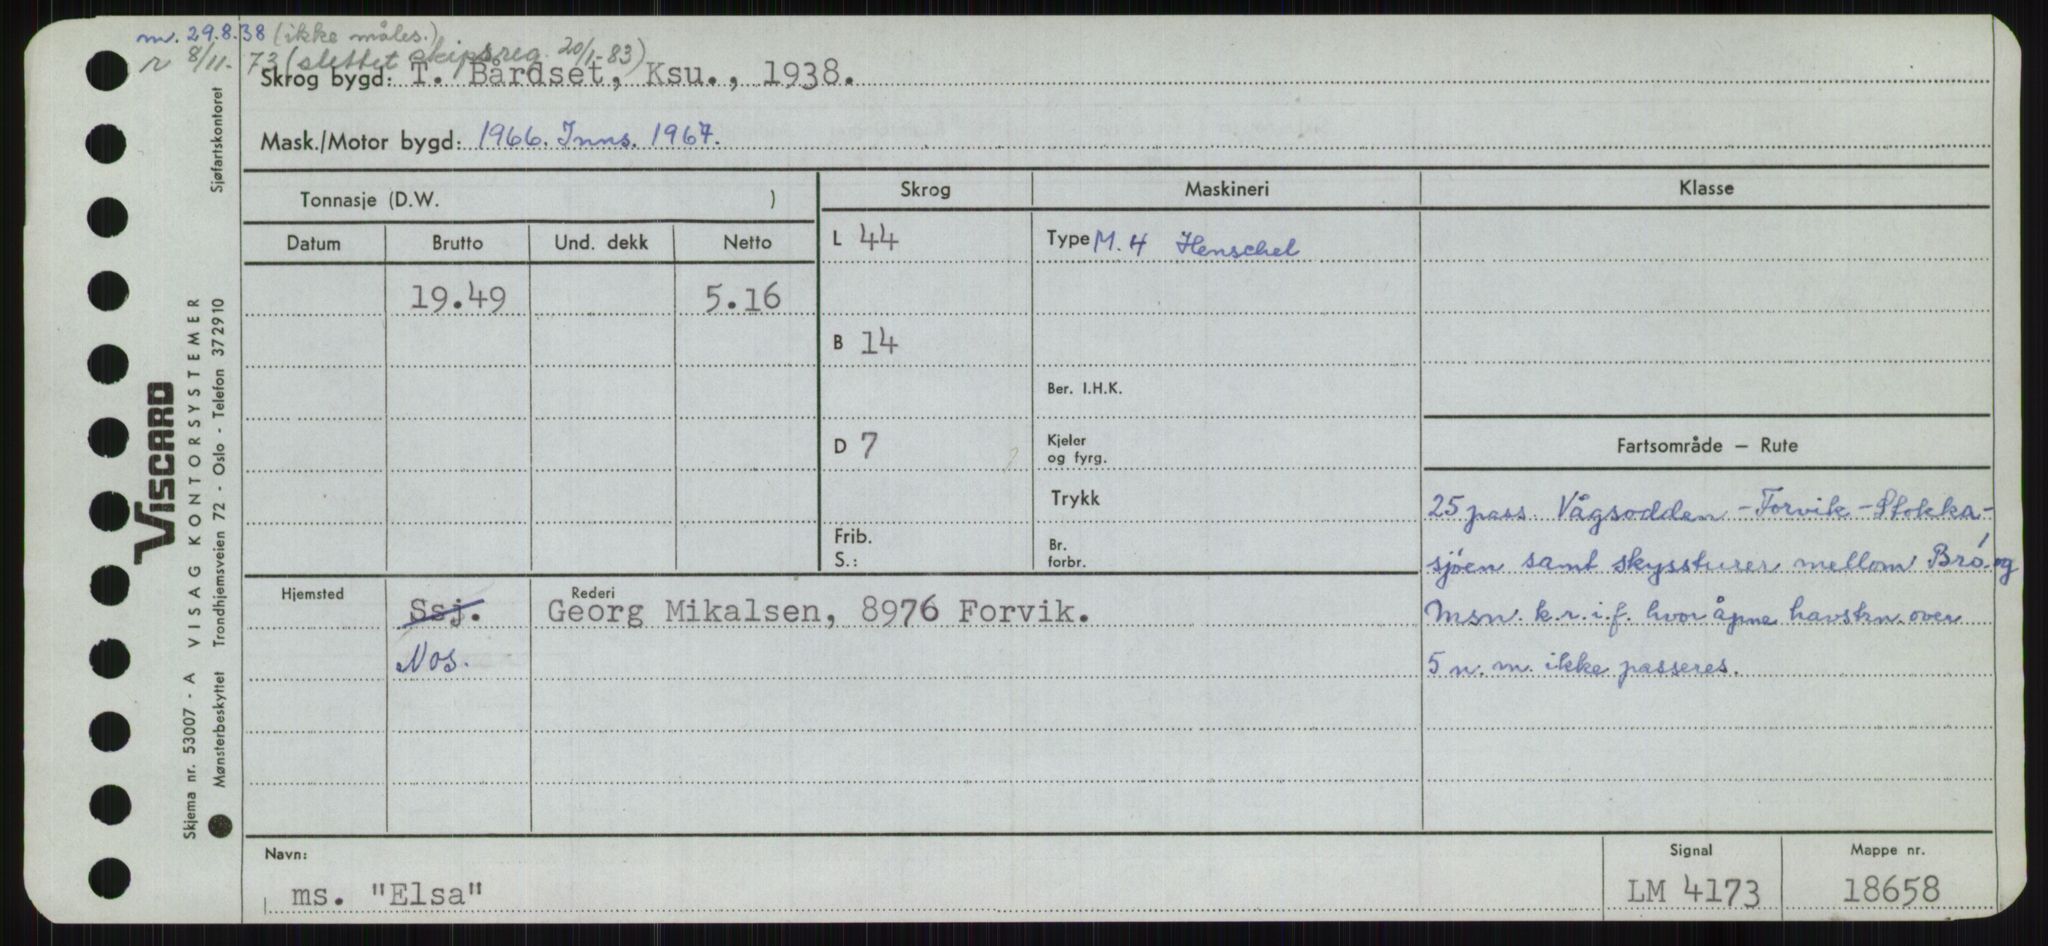 m. 29.8.38 (ikke måles.)
r 8/11-73 (slettet skipsreg. 20/1-83)
Skrog bygd: T. Bårdset, Ksu., 1938.
Mask./Motor bygd: 1966. Inns. 1967.
Tonnasje (D.W. )
Skrog
Maskineri
Klasse
Datum
Brutto
Und. dekk
Netto
L 44
Type M. 4 Henschel
19.49
5.16
B 14
Ber. I.H.K.
D 7
Kjeler
og fyrg.
Fartsområde – Rute
Trykk
25 pass. Vågsodden – Forvik – Stokka-
Frib.
S.:
Br.
forbr.
sjøen samt skyssturer mellom Brö. og
Hjemsted
Ssj.
Rederi
Georg Mikalsen, 8976 Forvik.
Msn. k.r.i.f. hvor åpne havstrn. over
Nos.
5 n. m. ikke passeres.
Navn:
ms. "Elsa"
Signal
LM 4173
Mappe nr.
18658
Sjøfartskontoret
VISCARD
VISAG KONTORSYSTEMER
Trondhjemsveien 72 - Oslo - Telefon 372910
Skjema nr. 53007 - A
Mønsterbeskyttet